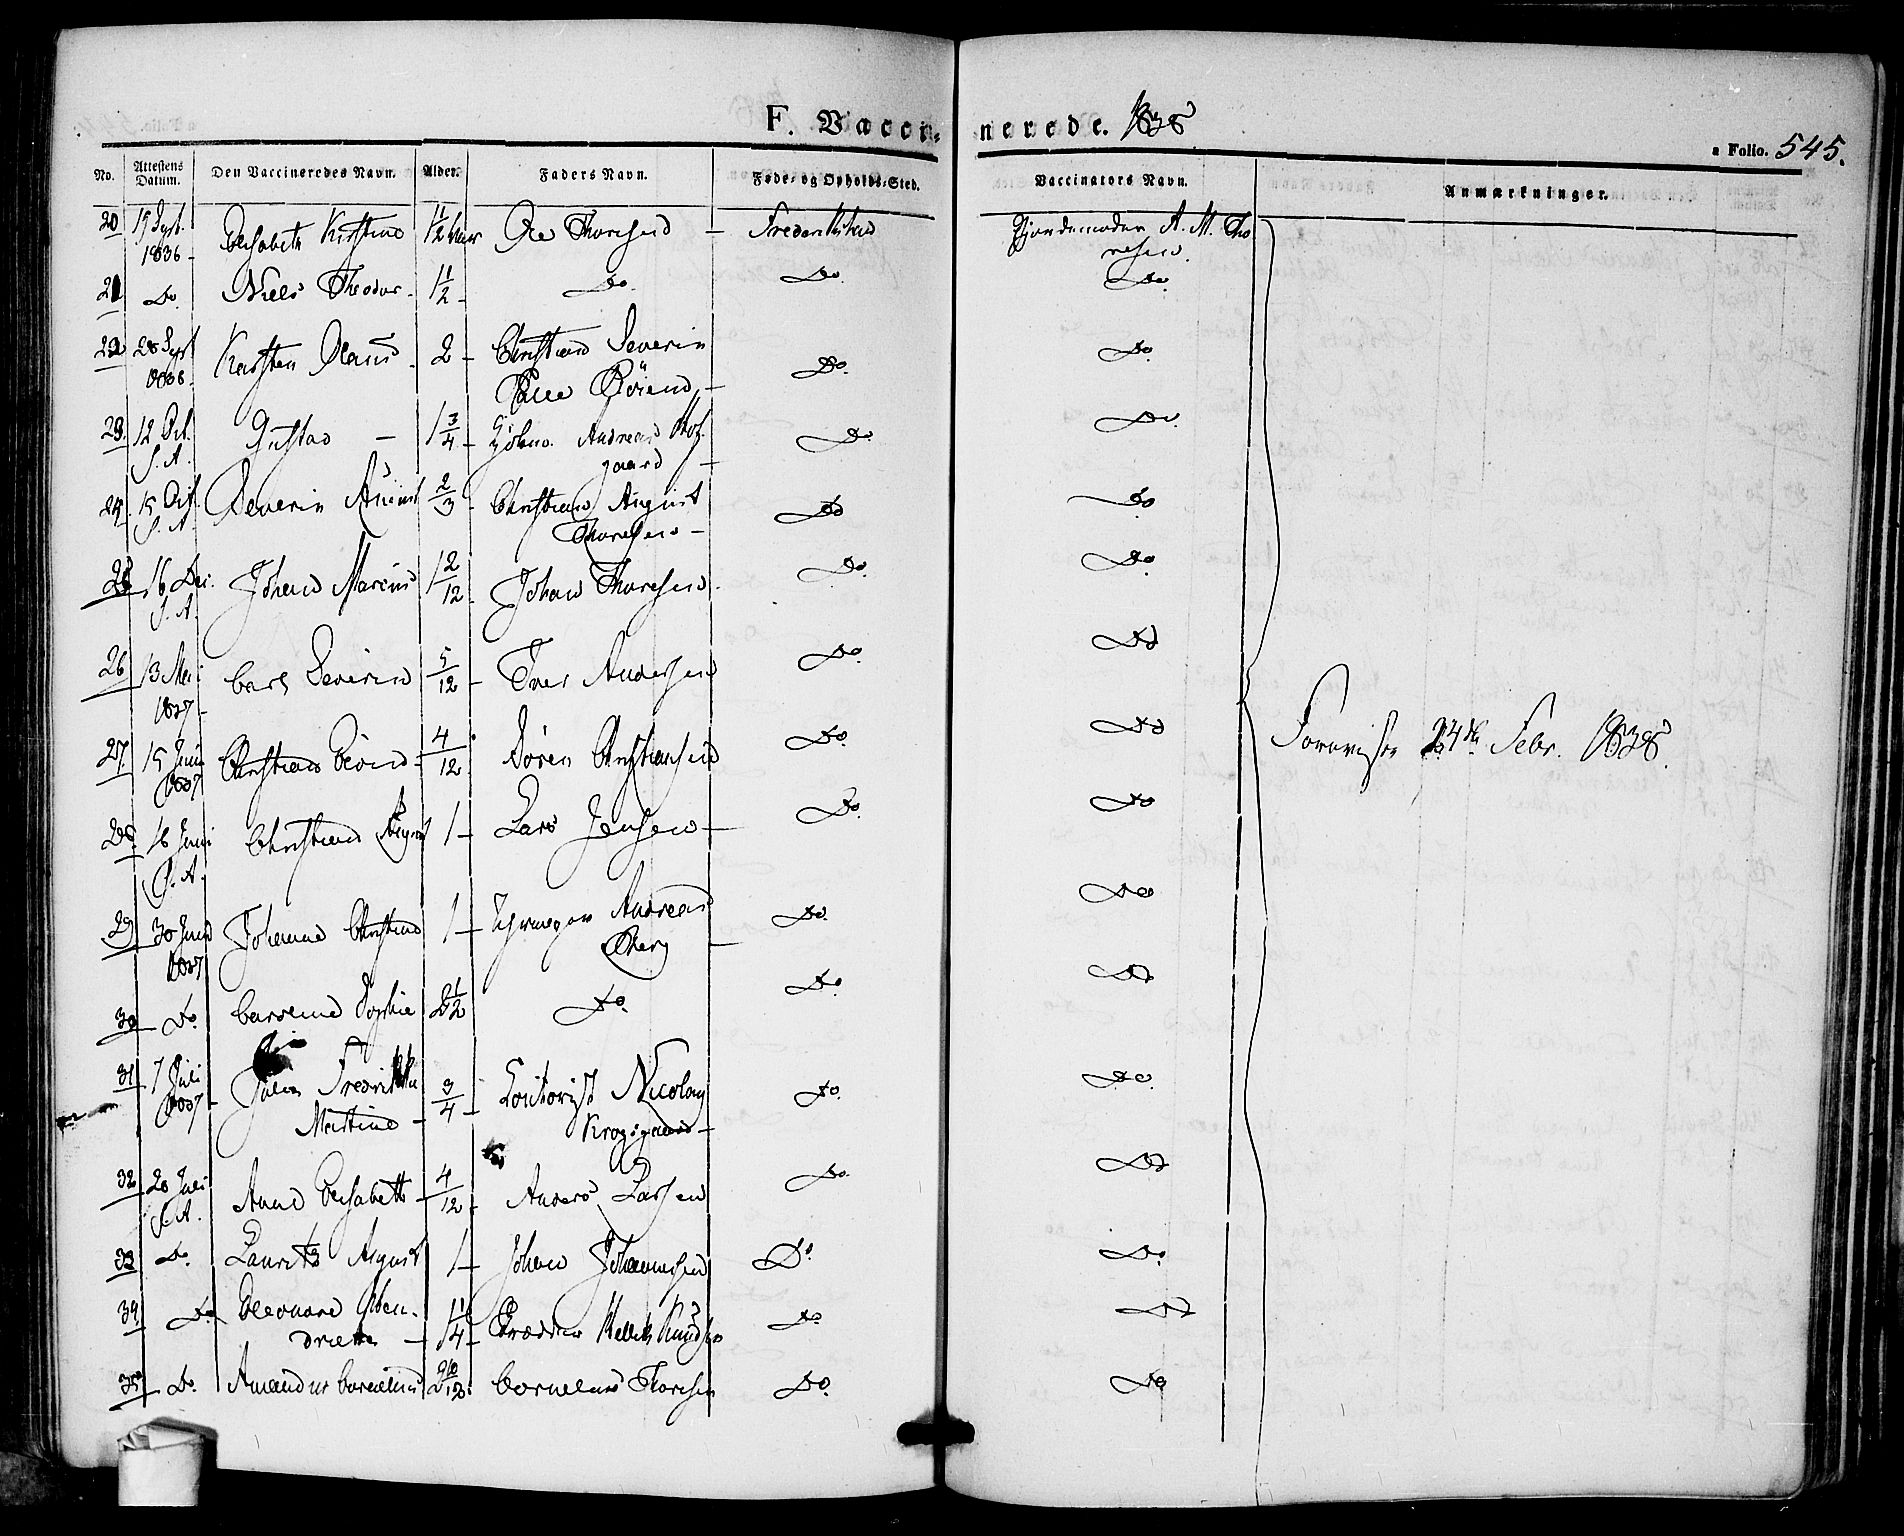 F. Vacci- nerede. 1838
a Folio. 545.
No. Attestens Datum. Den Vaccineredes Navn. Alder. Faders Navn. Føde- og Opholds-Sted. Vaccinators Navn. Anmærkninger.
20 15 Sept. Elisabeth Kirstine 1 1/2 Ole Thoresen – Frederikshald Gjordemoder A. M. Tho
1836 – resen.
21 Do. Niels Theodor – 1 1/2 – Do. Do. Do.
22 28 Sept Karsten Olaus – 2 – Christian Severin Do. Do.
1836.
23. 12 Oct. Gustav – 1 3/4 – Andreas Hof- Do. Do.
S. A. gaard –
24. 15 Oct. Severin August 2/3 – Christian August Do Do
S. A. Thoresen –
25 16 Dec. Johan Marcus 1 2/12 Johan Thoresen. Do. Do.
S. A.
26 13 Mai Carl Severin 5/12 – Iver Andersen Do. Do
1837 –
27. 15 Juni Christian 4/12 Søren Christiansen Do. Do Foreviste 24de Febr. 1838.
1837
28. 16 Juni Christian August 1 – Lars Jensen – Do. Do
S. A.
29 30 Juni Johanne Christine 1 – Andreas Do. Do
1837 Berg –
30 – Do. Sophie 2 1/2 Do. Do. Do
31 7 Juli Fredrikke 3/4 – Nicolay Do. Do.
1837 – Martine – Krogsgaard –
32 20 Juli Anne Elisabeth – 4/12 – Anders Larsen Do. Do
S. A.
33 Do. Laurits August 1 – Johan Johannesen Do. Do.
34 Do. Eleonore Hen- 1 1/4 – Kellik Knudsen Do Do
driette –
35 – Do. 2 10/12 Cornelius Thoresen Do. Do